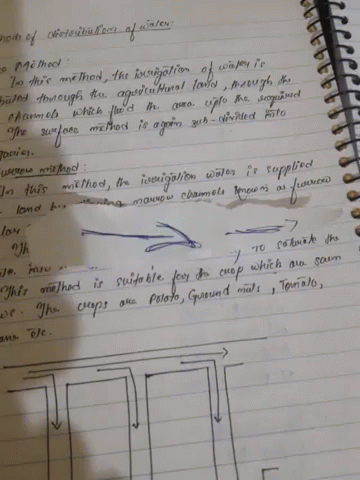 of distribution of water:
Method:
In this method, the irrigation of water is
through the agricultural land, through the
channels which flood the area upto the required
The surface method is again sub-divided into
furrow method:
In this method, the irrigation water is supplied
land by narrow channels known as furrows
Th
to saturate the
This method is suitable for the crop which are sown
The crops are Potato, Ground nuts, Tomato,
etc.